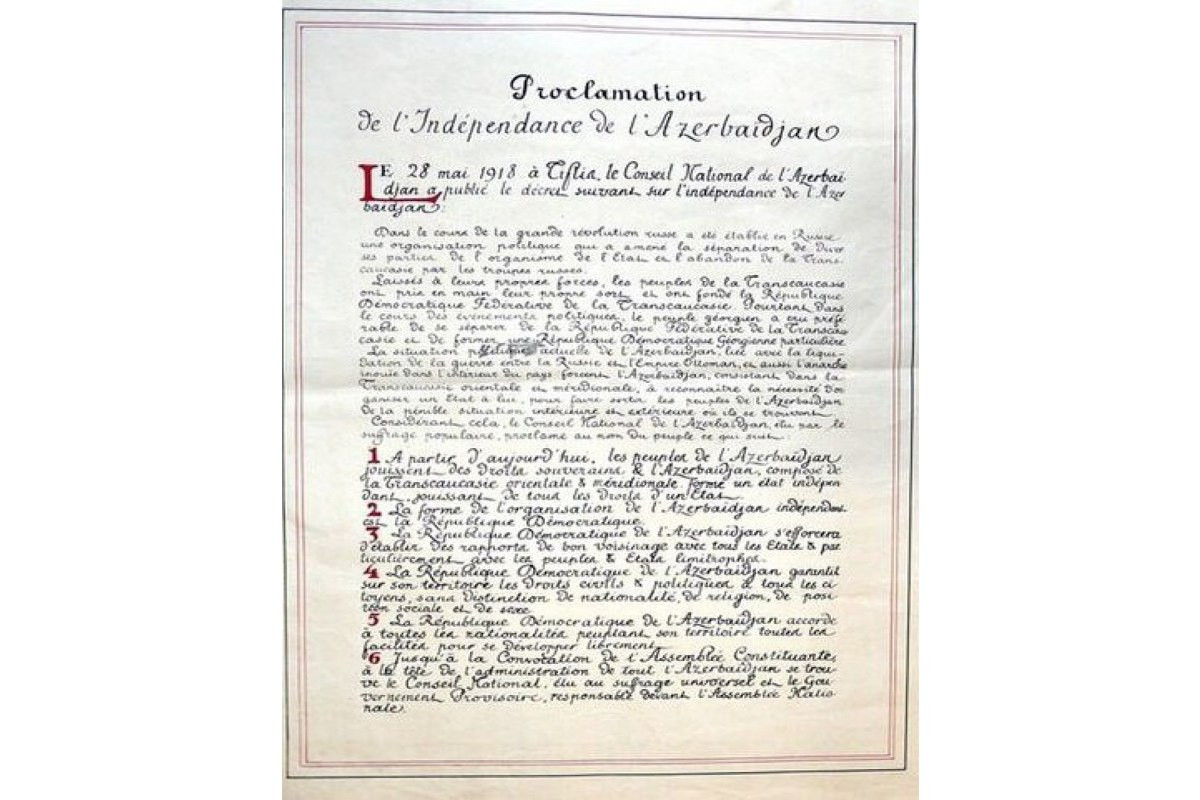 Proclamation
de l'Indépendance de l'Azerbaïdjan
LE 28 mai 1918 à Tiflis, le Conseil National de l'Azerbaï
djan a publié le décret suivant sur l'indépendance de l'Azer
baïdjan:
Dans le cours de la grande révolution russe a été établie en Russie
une organisation politique qui a amené la séparation de diver
ses parties de l'organisme de l'Etat et l'abandon de la Trans-
caucasie par les troupes russes.
Laissés à leurs propres forces, les peuples de la Transcaucasie
ont pris en main leur propre sort et ont fondé la République
Démocratique Fédérative de la Transcaucasie. Pourtant dans
le cours des événements politiques, le peuple géorgien a cru préfé
rable de se séparer de la République Fédérative de la Transcau
casie et de former une République Démocratique Géorgienne particulière
La situation politique actuelle de l'Azerbaïdjan, liée avec la liqui-
dation de la guerre entre la Russie et l'Empire Ottoman, et aussi l'anarchie
inouïe dans l'intérieur du pays forcent l'Azerbaïdjan, consistant dans la
Transcaucasie orientale et méridionale, à reconnaître la nécessité d'or
ganiser un Etat à lui, pour faire sortir les peuples de l'Azerbaïdjan
de la pénible situation intérieure et extérieure où ils se trouvent.
Considérant cela, le Conseil National de l'Azerbaïdjan, élu par le
suffrage populaire, proclame au nom du peuple ce qui suit:
1 A partir d'aujourd'hui, les peuples de l'Azerbaïdjan
jouissent des droits souverains & l'Azerbaïdjan, composé de
la Transcaucasie orientale & méridionale forme un état indépen
dant, jouissant de tous les droits d'un Etat.
2 La forme de l'organisation de l'Azerbaïdjan indépendant
est la République Démocratique.
3 La République Démocratique de l'Azerbaïdjan s'efforcera
d'établir des rapports de bon voisinage avec tous les Etats & par
ticulièrement avec les peuples & Etats limitrophes.
4 La République Démocratique de l'Azerbaïdjan garantit
sur son territoire les droits civils & politiques à tous les ci
toyens, sans distinction de nationalité, de religion, de posi
tion sociale et de sexe
5 La République Démocratique de l'Azerbaïdjan accorde
à toutes les nationalités peuplant son territoire toutes les
facilités pour se développer librement.
6 Jusqu'à la Convocation de l'Assemblée Constituante,
à la tête de l'administration de tout l'Azerbaïdjan se trou
ve le Conseil National, élu au suffrage universel et le Gou
vernement Provisoire, responsable devant l'Assemblée Natio-
nale.